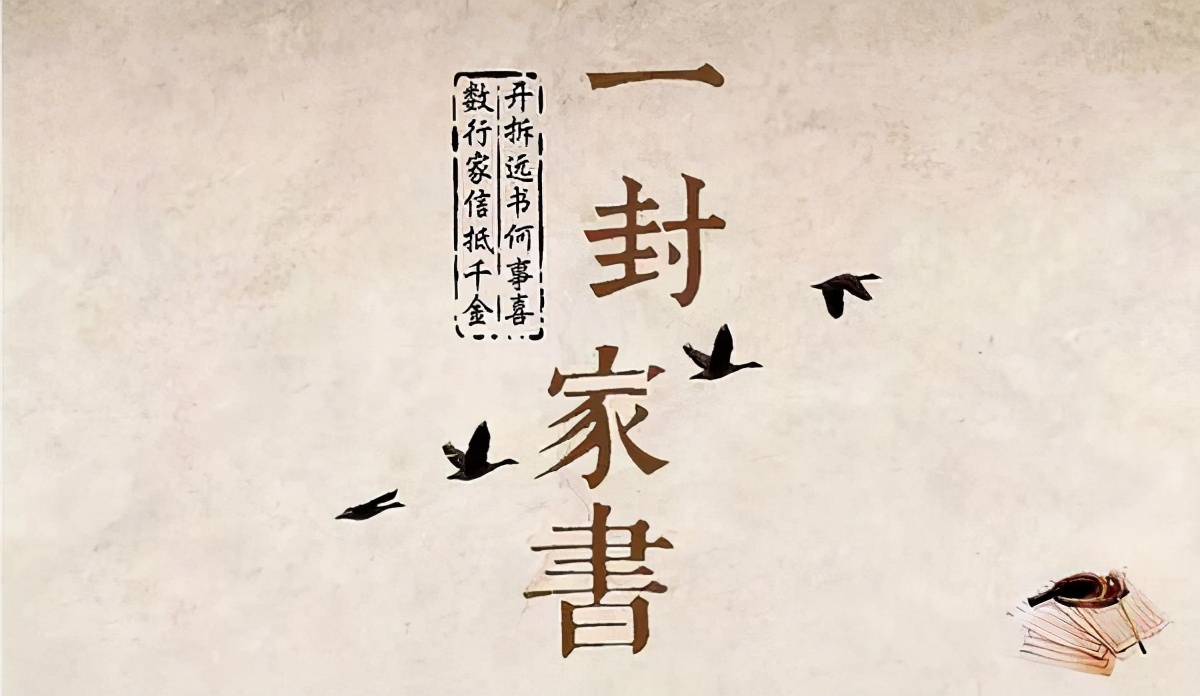 一封家書
开拆远书何事喜
数行家信抵千金